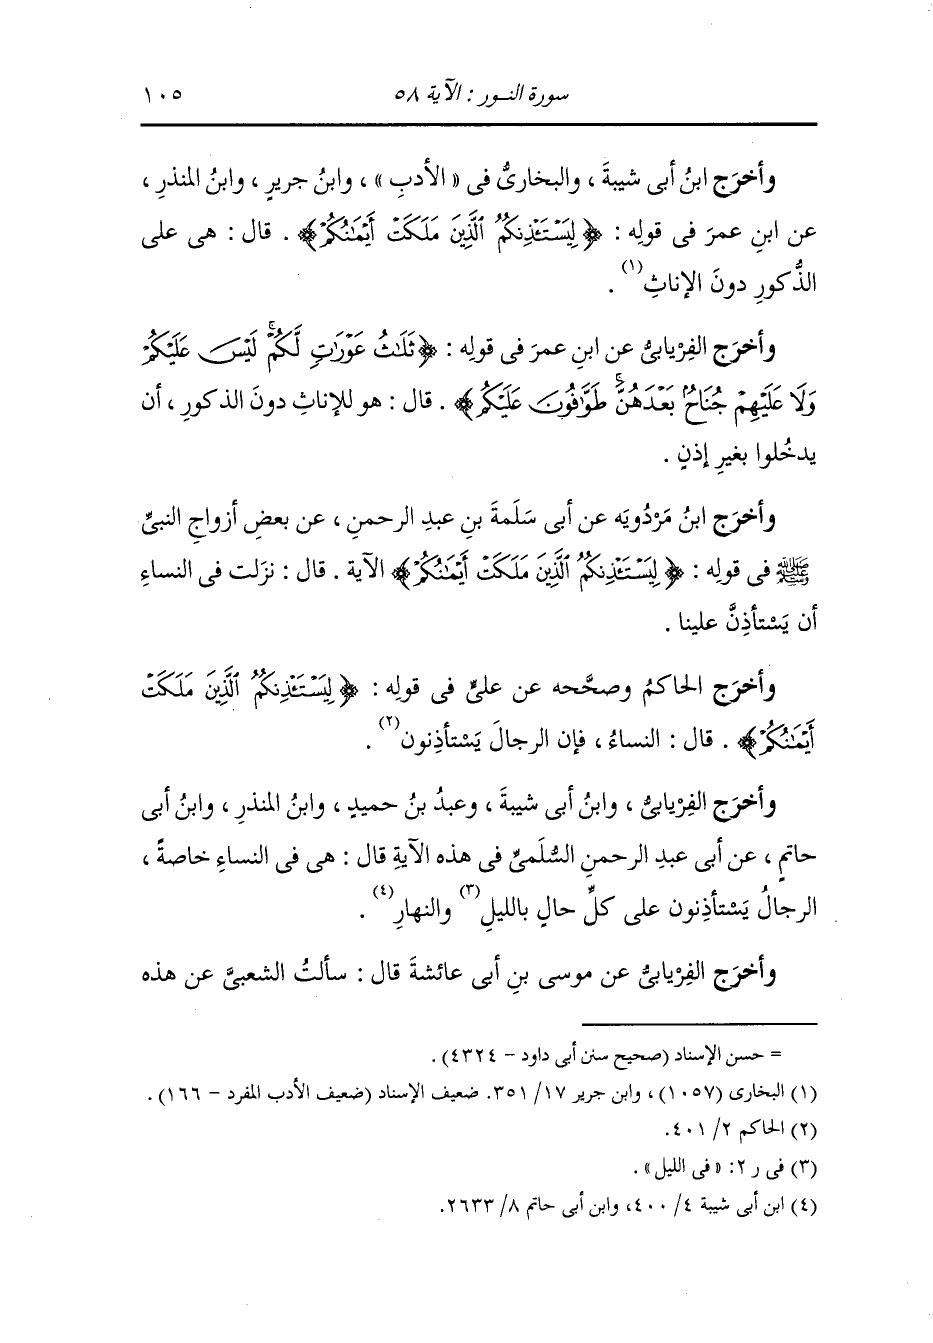 سورة النــور : الآية ٥٨ ١٠٥
وأخرَج ابنُ أبى شيبةَ ، والبخارىُّ فى « الأدبِ » ، وابنُ جريرٍ ، وابنُ المنذرِ ،
عن ابنِ عمرَ فى قولِه : ﴿ لِيَسْتَـْٔذِنكُمُ ٱلَّذِينَ مَلَكَتْ أَيْمَـٰنُكُمْ ﴾ . قال : هى على
الذُّكورِ دونَ الإناثِ(١) .
وأخرَج الفِرْيابىُّ عن ابنِ عمرَ فى قولِه : ﴿ ثَلَـٰثُ عَوْرَٰتٍ لَّكُمْ ۚ لَيْسَ عَلَيْكُمْ
وَلَا عَلَيْهِمْ جُنَاحٌۢ بَعْدَهُنَّ ۚ طَوَّٰفُونَ عَلَيْكُم ﴾ . قال : هو للإناثِ دونَ الذكورِ ، أن
يدخُلوا بغيرِ إذنٍ .
وأخرَج ابنُ مَرْدُويَه عن أبى سَلَمةَ بنِ عبدِ الرحمنِ ، عن بعضِ أزواجِ النبىِّ
ﷺ فى قولِه : ﴿ لِيَسْتَـْٔذِنكُمُ ٱلَّذِينَ مَلَكَتْ أَيْمَـٰنُكُمْ ﴾ الآية . قال : نزَلت فى النساءِ
أن يَسْتأذِنَّ علينا .
وأخرَج الحاكمُ وصحَّحه عن علىٍّ فى قولِه : ﴿ لِيَسْتَـْٔذِنكُمُ ٱلَّذِينَ مَلَكَتْ
أَيْمَـٰنُكُمْ ﴾ . قال : النساءُ ، فإن الرجالَ يَسْتأذِنون(٢) .
وأخرَج الفِرْيابىُّ ، وابنُ أبى شيبةَ ، وعبدُ بنُ حميدٍ ، وابنُ المنذرِ ، وابنُ أبى
حاتمٍ ، عن أبى عبدِ الرحمنِ السُّلَمىِّ فى هذه الآيةِ قال : هى فى النساءِ خاصةً ،
الرجالُ يَسْتأذِنون على كلِّ حالٍ بالليلِ(٣) والنهارِ(٤) .
وأخرَج الفِرْيابىُّ عن موسى بنِ أبى عائشةَ قال : سألتُ الشعبىَّ عن هذه
= حسن الإسناد (صحيح سنن أبى داود - ٤٣٢٤) .
(١) البخارى (١٠٥٧) ، وابن جرير ١٧/ ٣٥١. ضعيف الإسناد (ضعيف الأدب المفرد - ١٦٦) .
(٢) الحاكم ٢/ ٤٠١.
(٣) فى ر ٢: « فى الليل » .
(٤) ابن أبى شيبة ٤/ ٤٠٠، وابن أبى حاتم ٨/ ٢٦٣٣.